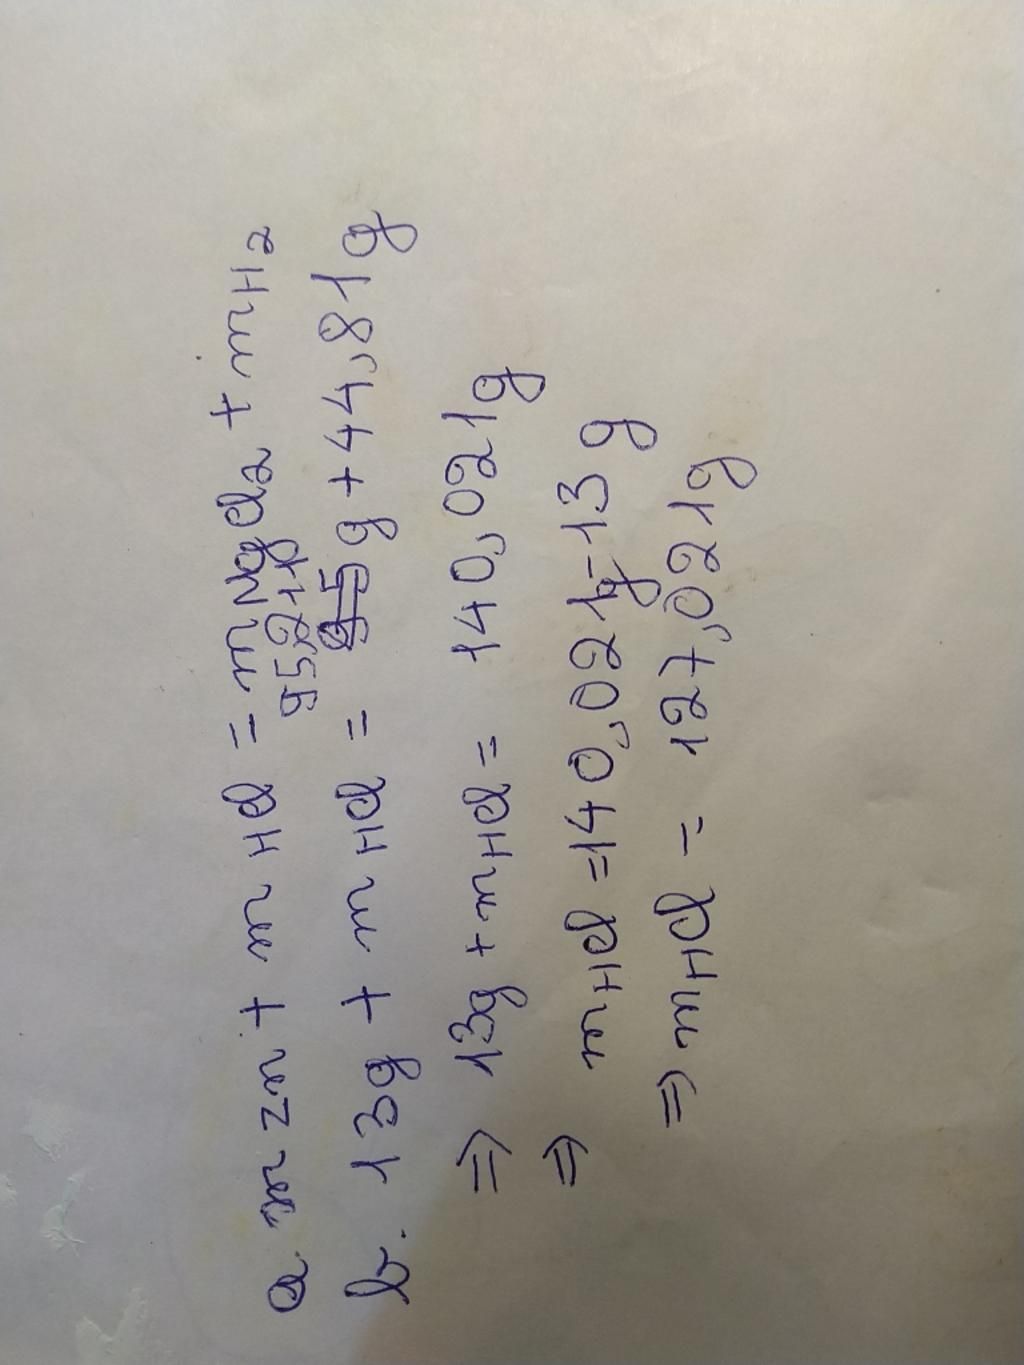 a. m Zn + m HCl = m MgCl2 + m H2
95,211
b. 13g + m HCl = 95 g + 44,81g
=> 13g + m HCl = 140,021g
=> m HCl = 140,021g - 13 g
=> m HCl = 127,021g